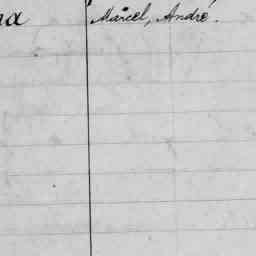 Marcel, André.